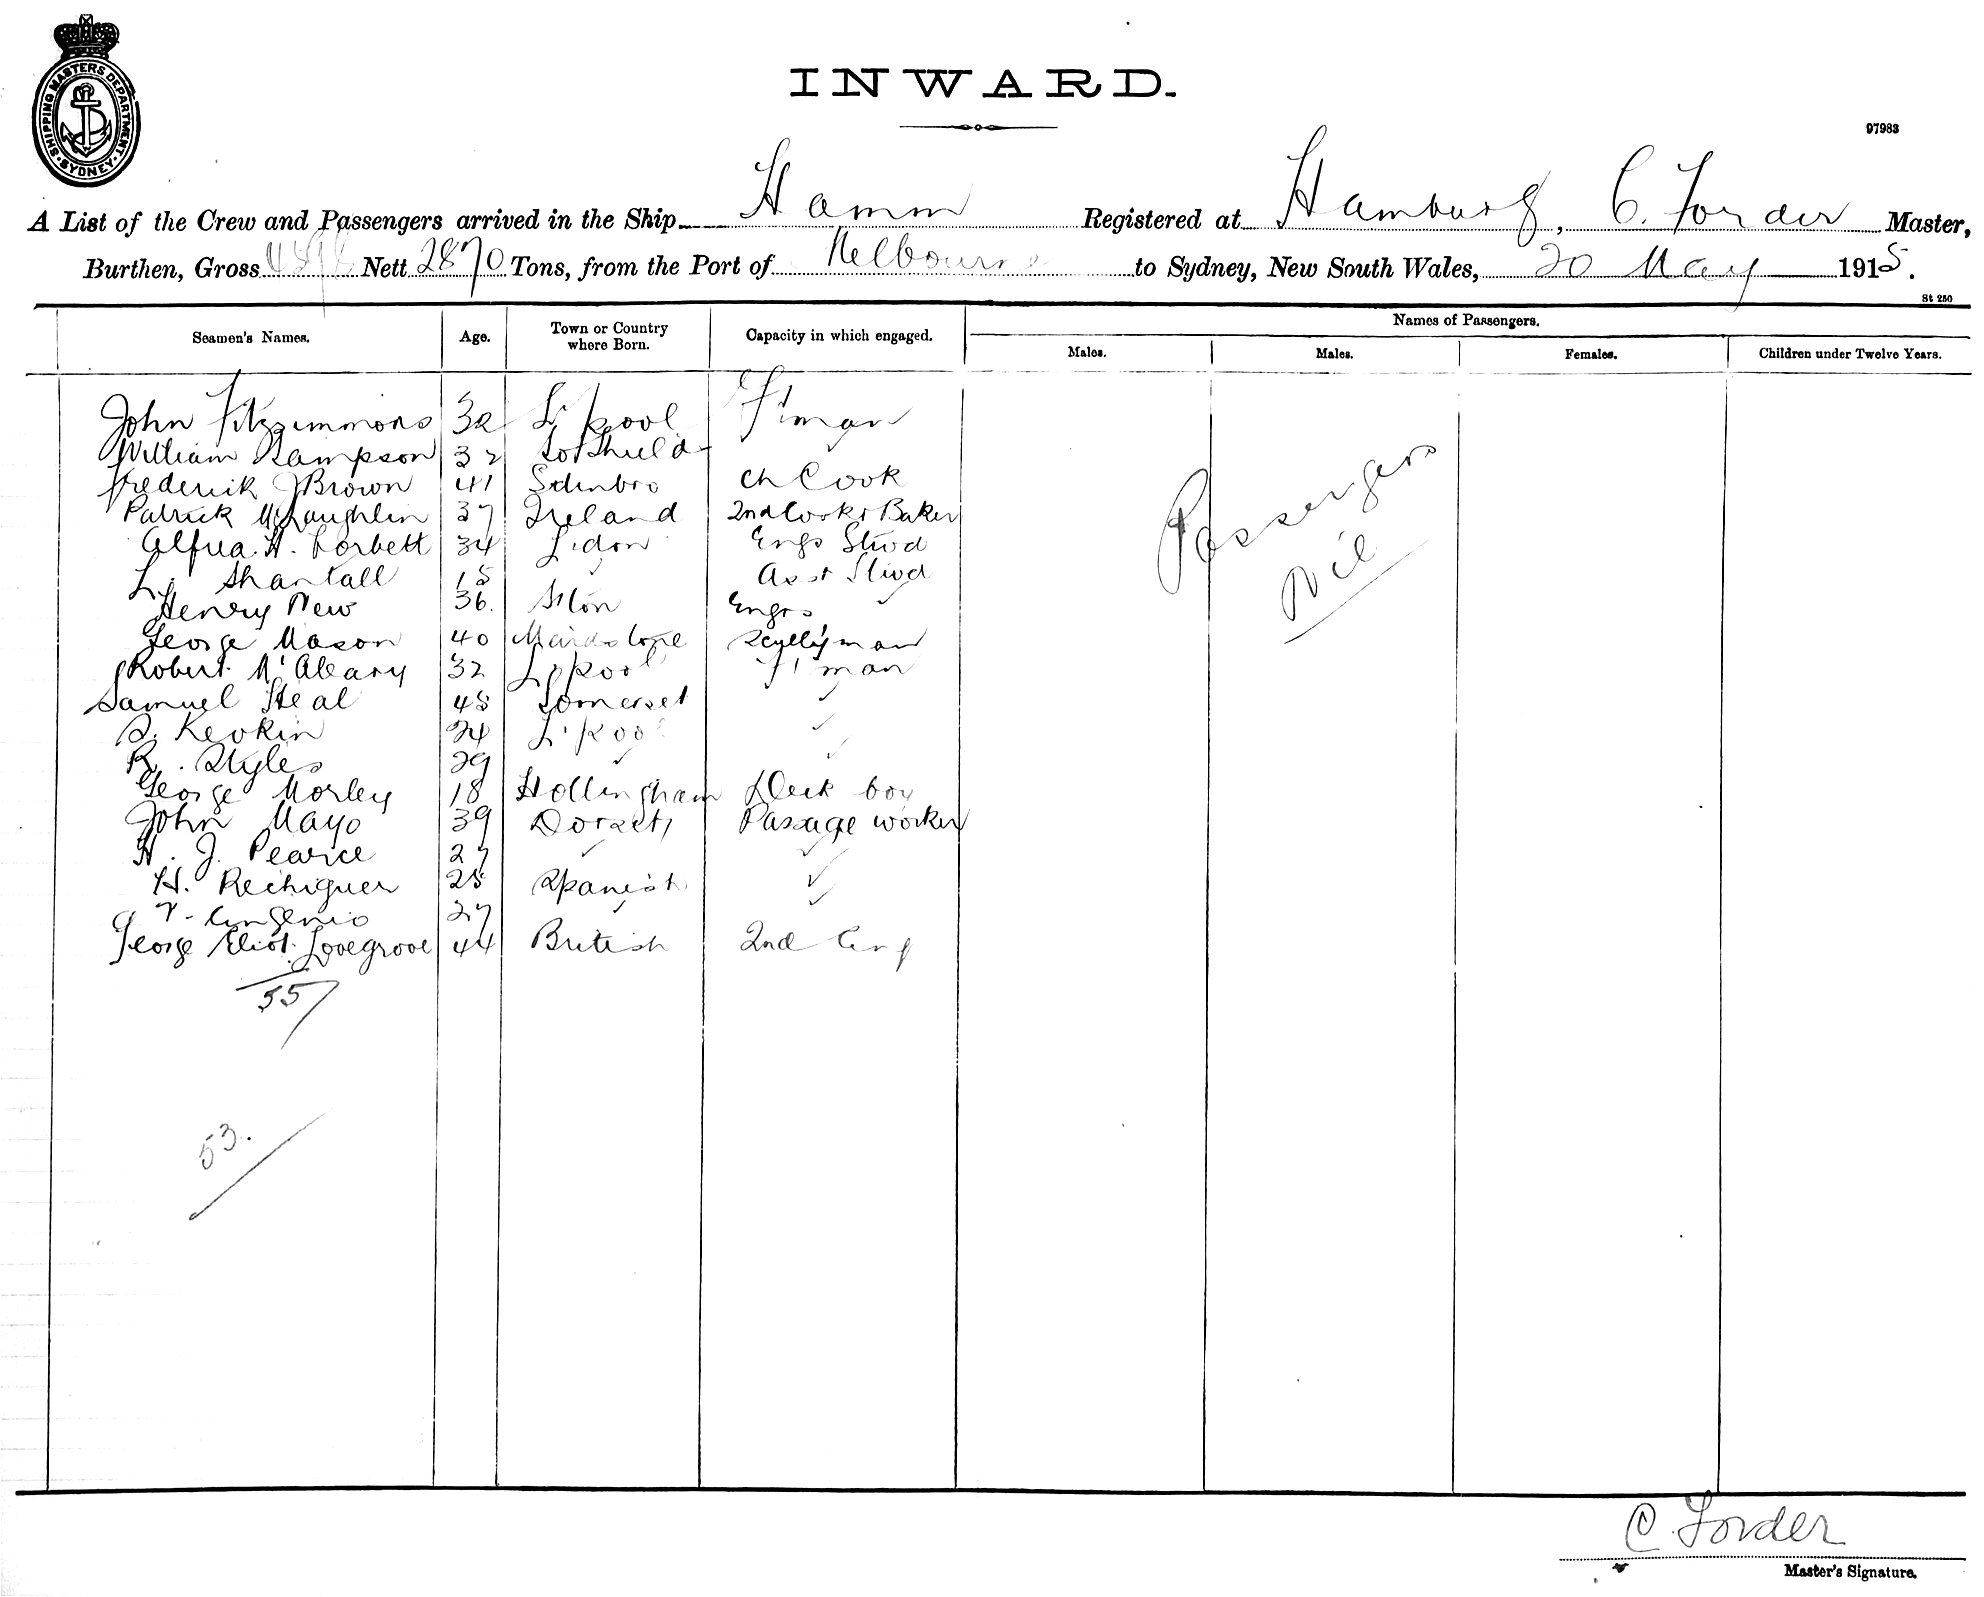 SHIPPING MASTERS DEPARTMENT · SYDNEY ·
INWARD.
97983
A List of the Crew and Passengers arrived in the Ship Hamm Registered at Hamburg, C. Forder Master,
Burthen, Gross Nett 2870 Tons, from the Port of Melbourne to Sydney, New South Wales, 20 May 1915.
St 250
Seamen's Names. Age. Town or Country where Born. Capacity in which engaged. Names of Passengers.
Males. Males. Females. Children under Twelve Years.
John Fitzsimmons 32 L'pool F'man
William Sampson 32 So Shields
Frederick J Brown 41 Edinbro Ch Cook
Patrick McLaughlin 37 Ireland 2nd Cook & Baker
Alfred H. Corbett 34 L'don Engs Stwd
L. Shantall 18 ✓ Asst Stwd
Henry New 36. Engrs ✓
George Mason 40 Maidstone
Robert McAleary 32 L'pool F'man
Samuel Heal 45 Somerset ✓
S. Kevkin 24 L'pool ✓
R. Styles 29 ✓ ✓
George Morley 18 Hollingham Deck boy
John Mayo 39 Dorset Passage worker
H. J. Pearce 27 ✓ ✓
H. Rechiguer 25 Spanish ✓
27 ✓ ✓
George Eliot Lovegrove 44 British 2nd Eng
55
53.
Passengers
Nil
C. Forder
Master's Signature.